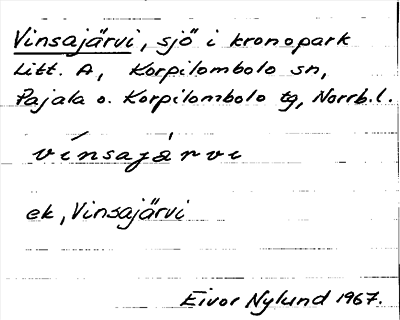 Vinsajärvi, sjö i kronopark
Litt. A, Korpilombolo sn,
Pajala o. Korpilombolo tg, Norrb.l.
vínsajà̈rvi
ek, Vinsajärvi
Eivor Nylund 1967.